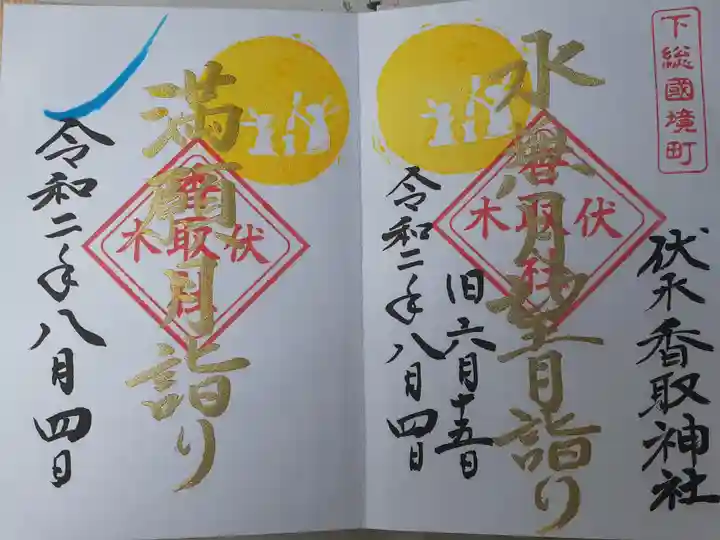 下総國境町
伏木香取神社
水無月望月詣り
伏香取社木
旧六月十五日
令和二年八月四日
満願月詣り
伏香取社木
令和二年八月四日